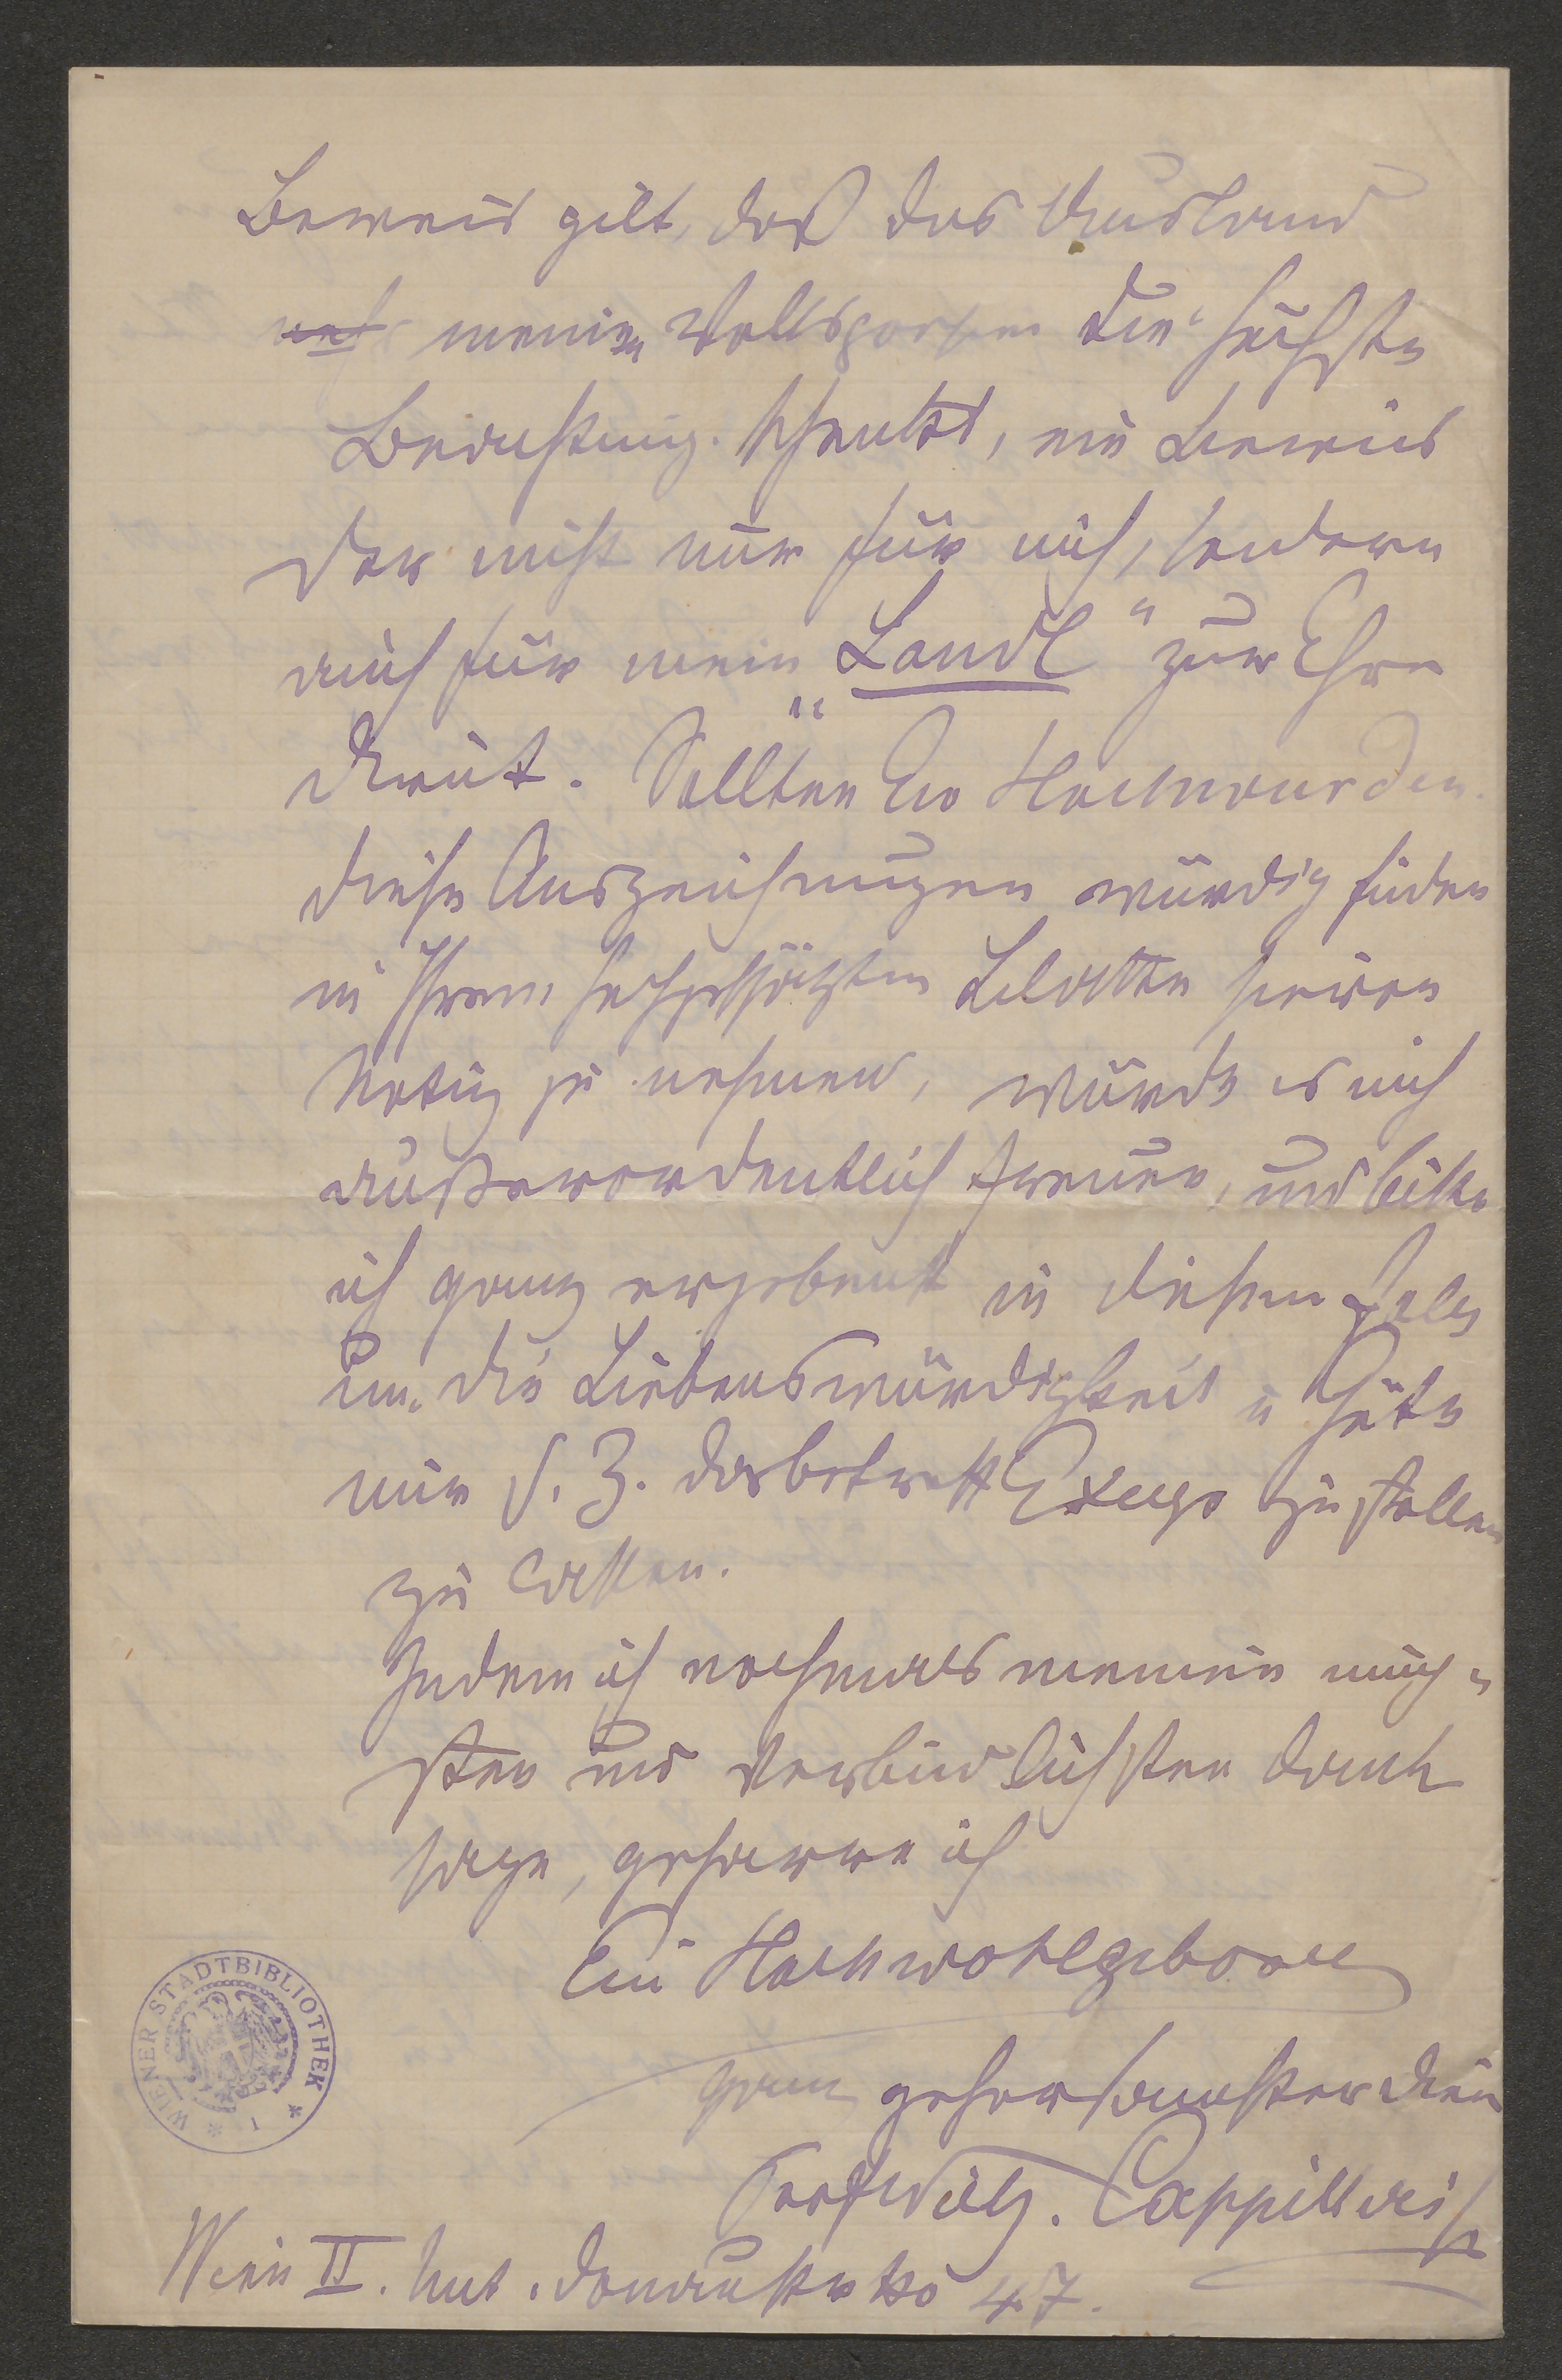 Beweis gilt, daß das Ausland
meinen Volkspoesien die höchste
Beachtung schenkt, ein Beweis
der nicht nur für mich, sondern
auch für mein „Landl“ zur Ehre
dient. Sollten Ew Hochwürden
diese Auszeichnungen würdig finden
in Ihrem hochgeschätzten Blatte hievon
Notiz zu nehmen, würde es mich
außerordentlich freuen, und bitte
ich ganz ergebenst in diesem Falle
um die Liebenswürdigkeit u Güte
mir s. Z. das betreff Exempl zustellen
zu lassen.
Indem ich nochmals meinen innig-
sten und verbindlichsten Dank
sage, geharre ich
Eu Hochwohlgeboren
ganz gehorsamster Dien
Herm. Cappilleri
Wien II. Unt. Donaustraße 47.
WIENER STADTBIBLIOTHEK